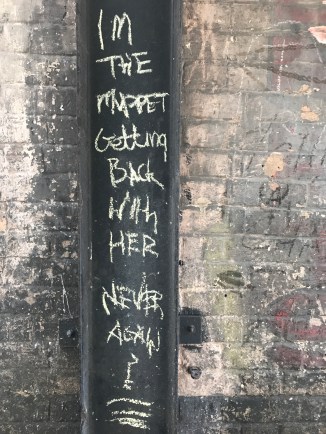 I'M
THE
MUPPET
Getting
BACK
With
HER
NEVER
AGAIN
!